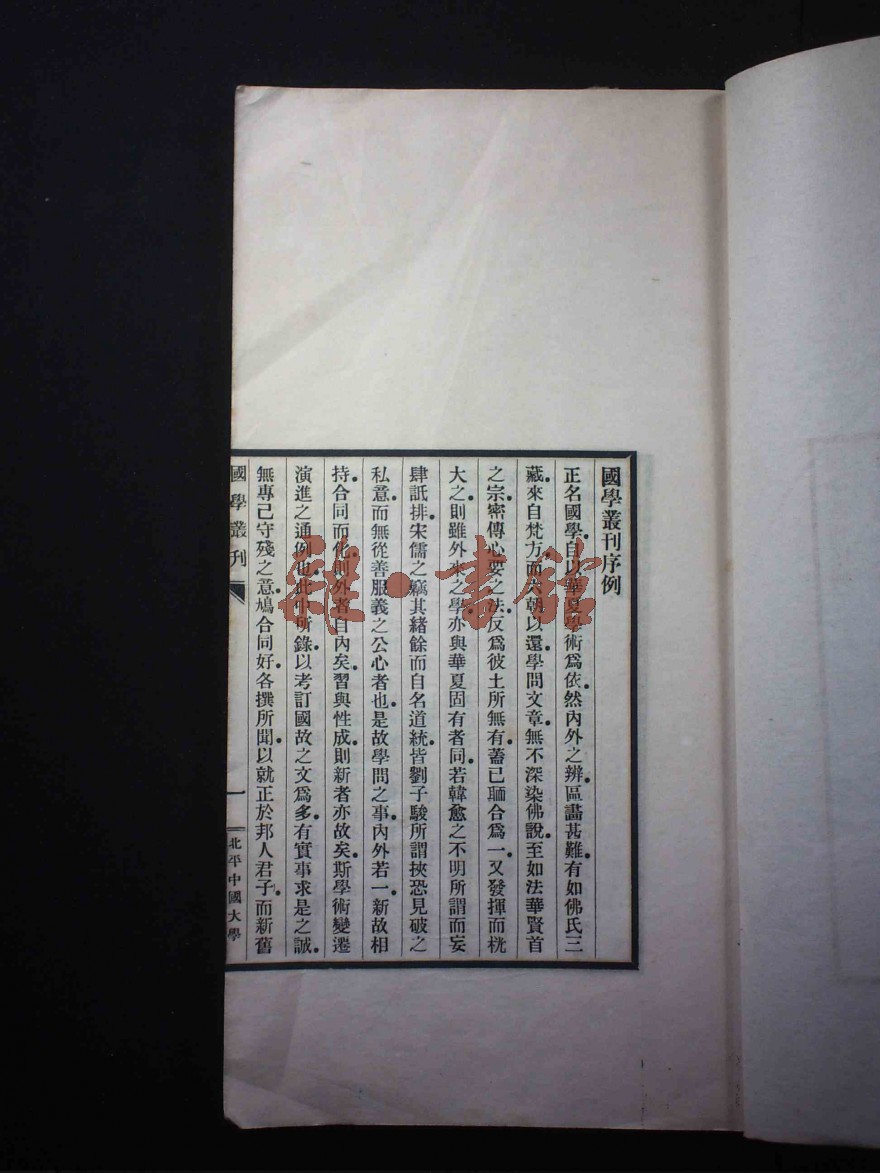 國學叢刊序例
正名國學。自以華夏學術爲依。然內外之辨。區畫甚難。有如佛氏三
藏。來自梵方。而六朝以還。學問文章。無不深染佛說。至如法華賢首
之宗。密傳心要之法。反爲彼土所無有。蓋已聏合爲一。又發揮而桄
大之。則雖外來之學。亦與華夏固有者同。若韓愈之不明所謂而妄
肆詆排。宋儒之竊其緒餘而自名道統。皆劉子駿所謂挾恐見破之
私意。而無從善服義之公心者也。是故學問之事。內外若一。新故相
持。合同而化。則外者自內矣。習與性成。則新者亦故矣。斯學術變遷
演進之通例也。此中所錄。以考訂國故之文爲多。有實事求是之誠。
無專己守殘之意。鳩合同好。各撰所聞。以就正於邦人君子。而新舊
國學叢刊
一
北平中國大學
雜·書館